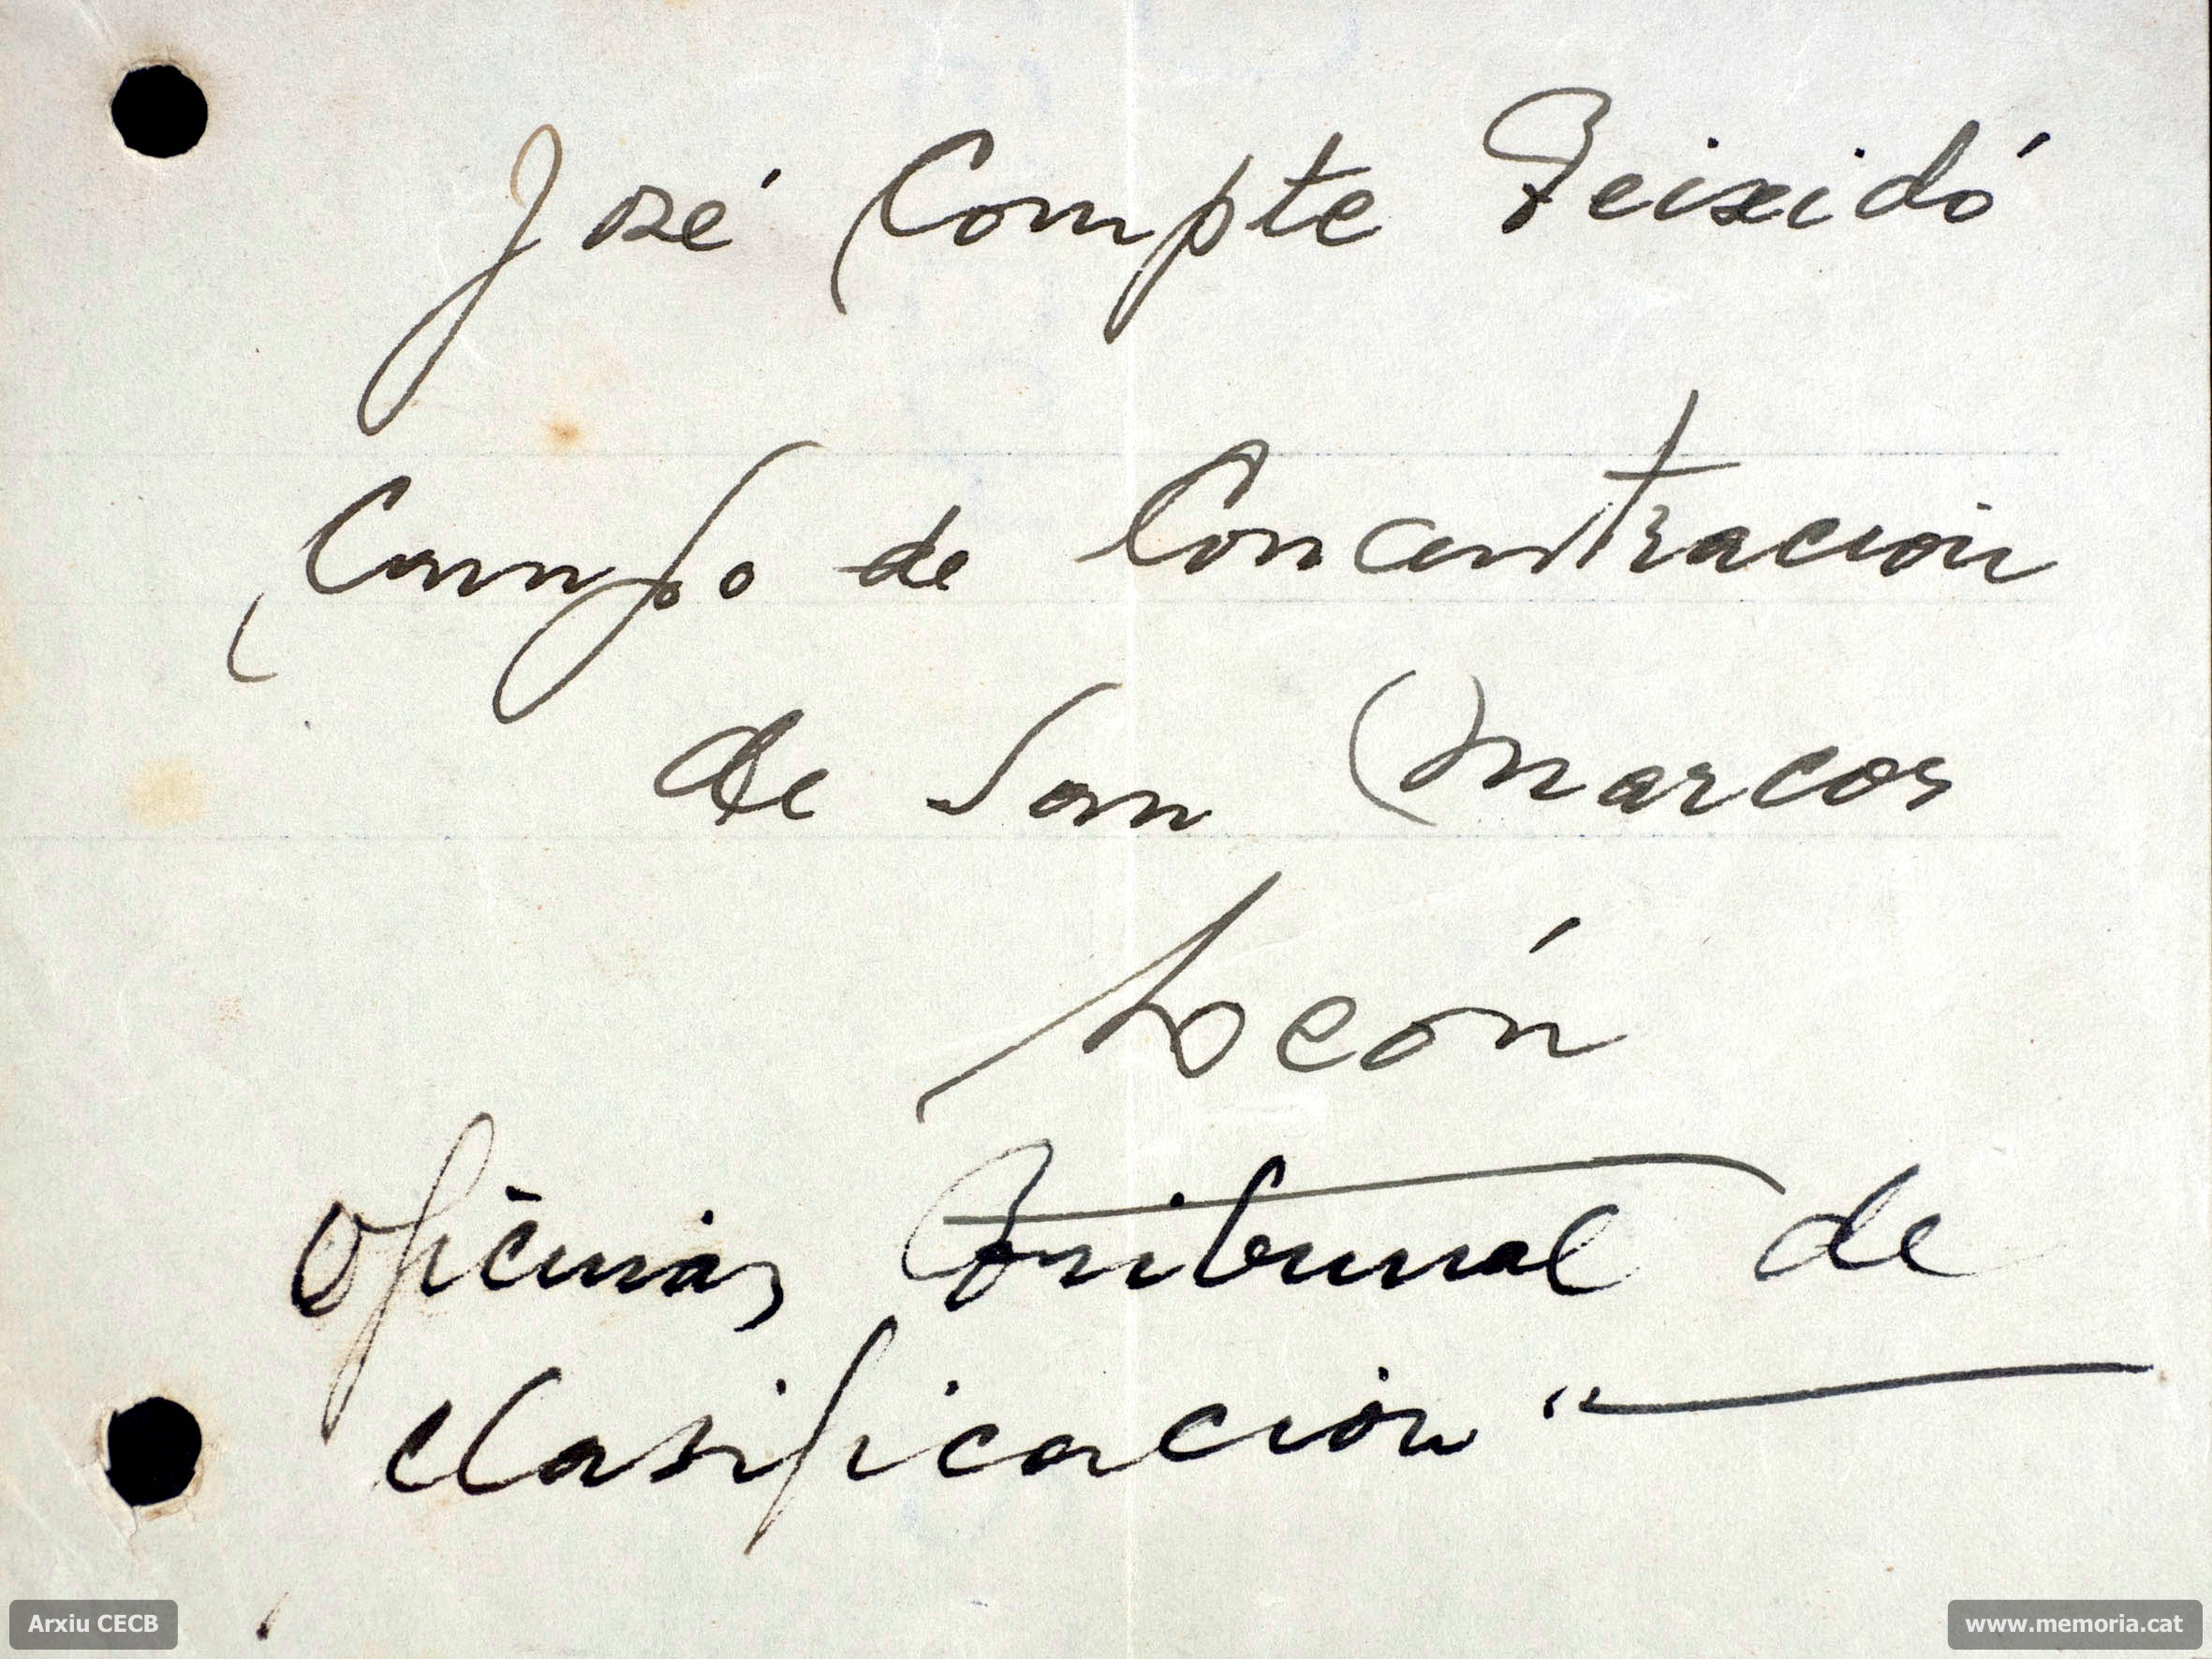 José Compte Teixidó
Campo de Concentración
de San Marcos
León
Oficinas Tribunal de
clasificación "
Arxiu CECB
www.memoria.cat